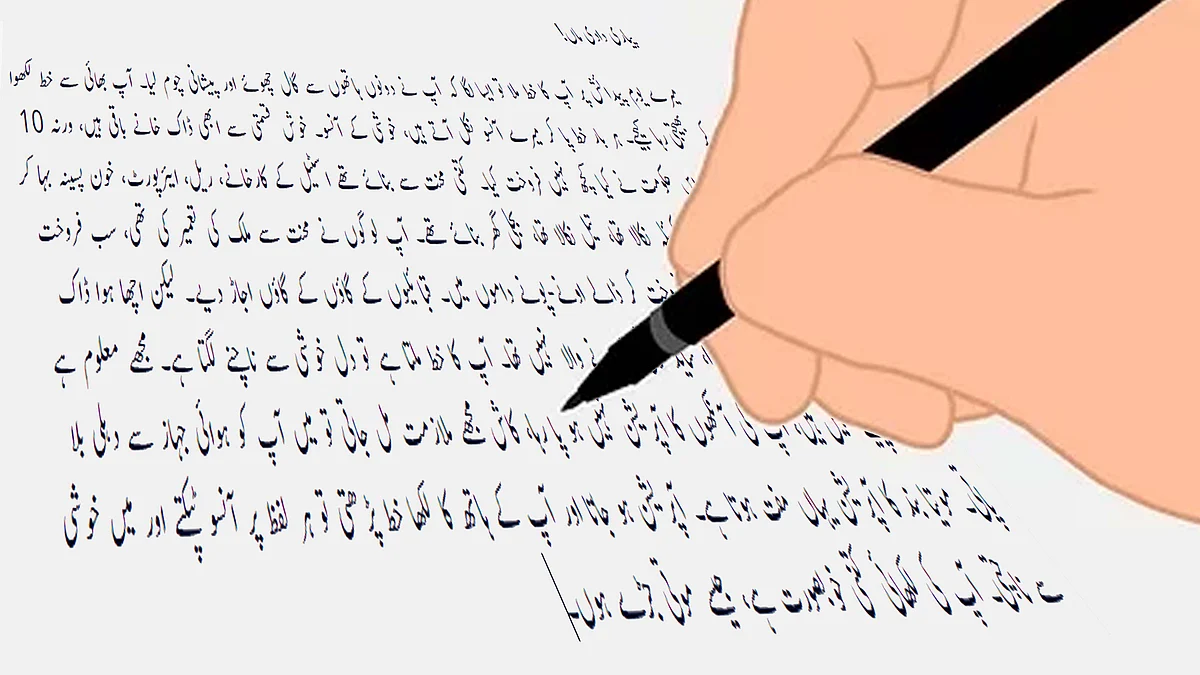 پیاری دادی ماں!
میرے یوم پیدائش پر آپ کا خط ملا تو ایسا لگا کہ آپ نے دونوں ہاتھوں سے گال چھوئے اور پیشانی چوم لیا۔ آپ بھائی سے خط لکھوا
کر بھیجتی رہا کیجیے۔ ہر بار خط پا کر میرے آنسو نکل آتے ہیں، خوشی کے آنسو۔ خوش قسمتی سے ابھی ڈاک خانے باقی ہیں، ورنہ 10
حکومت نے کیا کچھ نہیں فروخت کیا۔ کتنی محنت سے بنائے تھے اسٹیل کے کارخانے، ریل، ایئرپورٹ، خون پسینہ بہا کر
نکالا تھا، تیل نکالا تھا، بجلی گھر بنائے تھے۔ آپ لوگوں نے محنت سے ملک کی تعمیر کی تھی، سب فروخت
کر ڈالے اونے-پونے داموں میں۔ قبائلیوں کے گاؤں کے گاؤں اجاڑ دیے۔ لیکن اچھا ہوا ڈاک
والا نہیں تھا۔ آپ کا خط ملتا ہے تو دل خوشی سے ناچنے لگتا ہے۔ مجھے معلوم ہے
آپ کی آنکھوں کا آپریشن نہیں ہو پا رہا، کاش مجھے ملازمت مل جاتی تو میں آپ کو ہوائی جہاز سے دہلی بلا
پاتی۔ موتیا بند کا آپریشن یہاں مفت ہوتا ہے۔ آپریشن ہو جاتا اور آپ کے ہاتھ کا لکھا خط پڑھتی تو ہر لفظ پر آنسو ٹپکتے اور میں خوشی
سے ناچتی۔ آپ کی لکھائی کتنی خوبصورت ہے، جیسے موتی جڑے ہوں۔